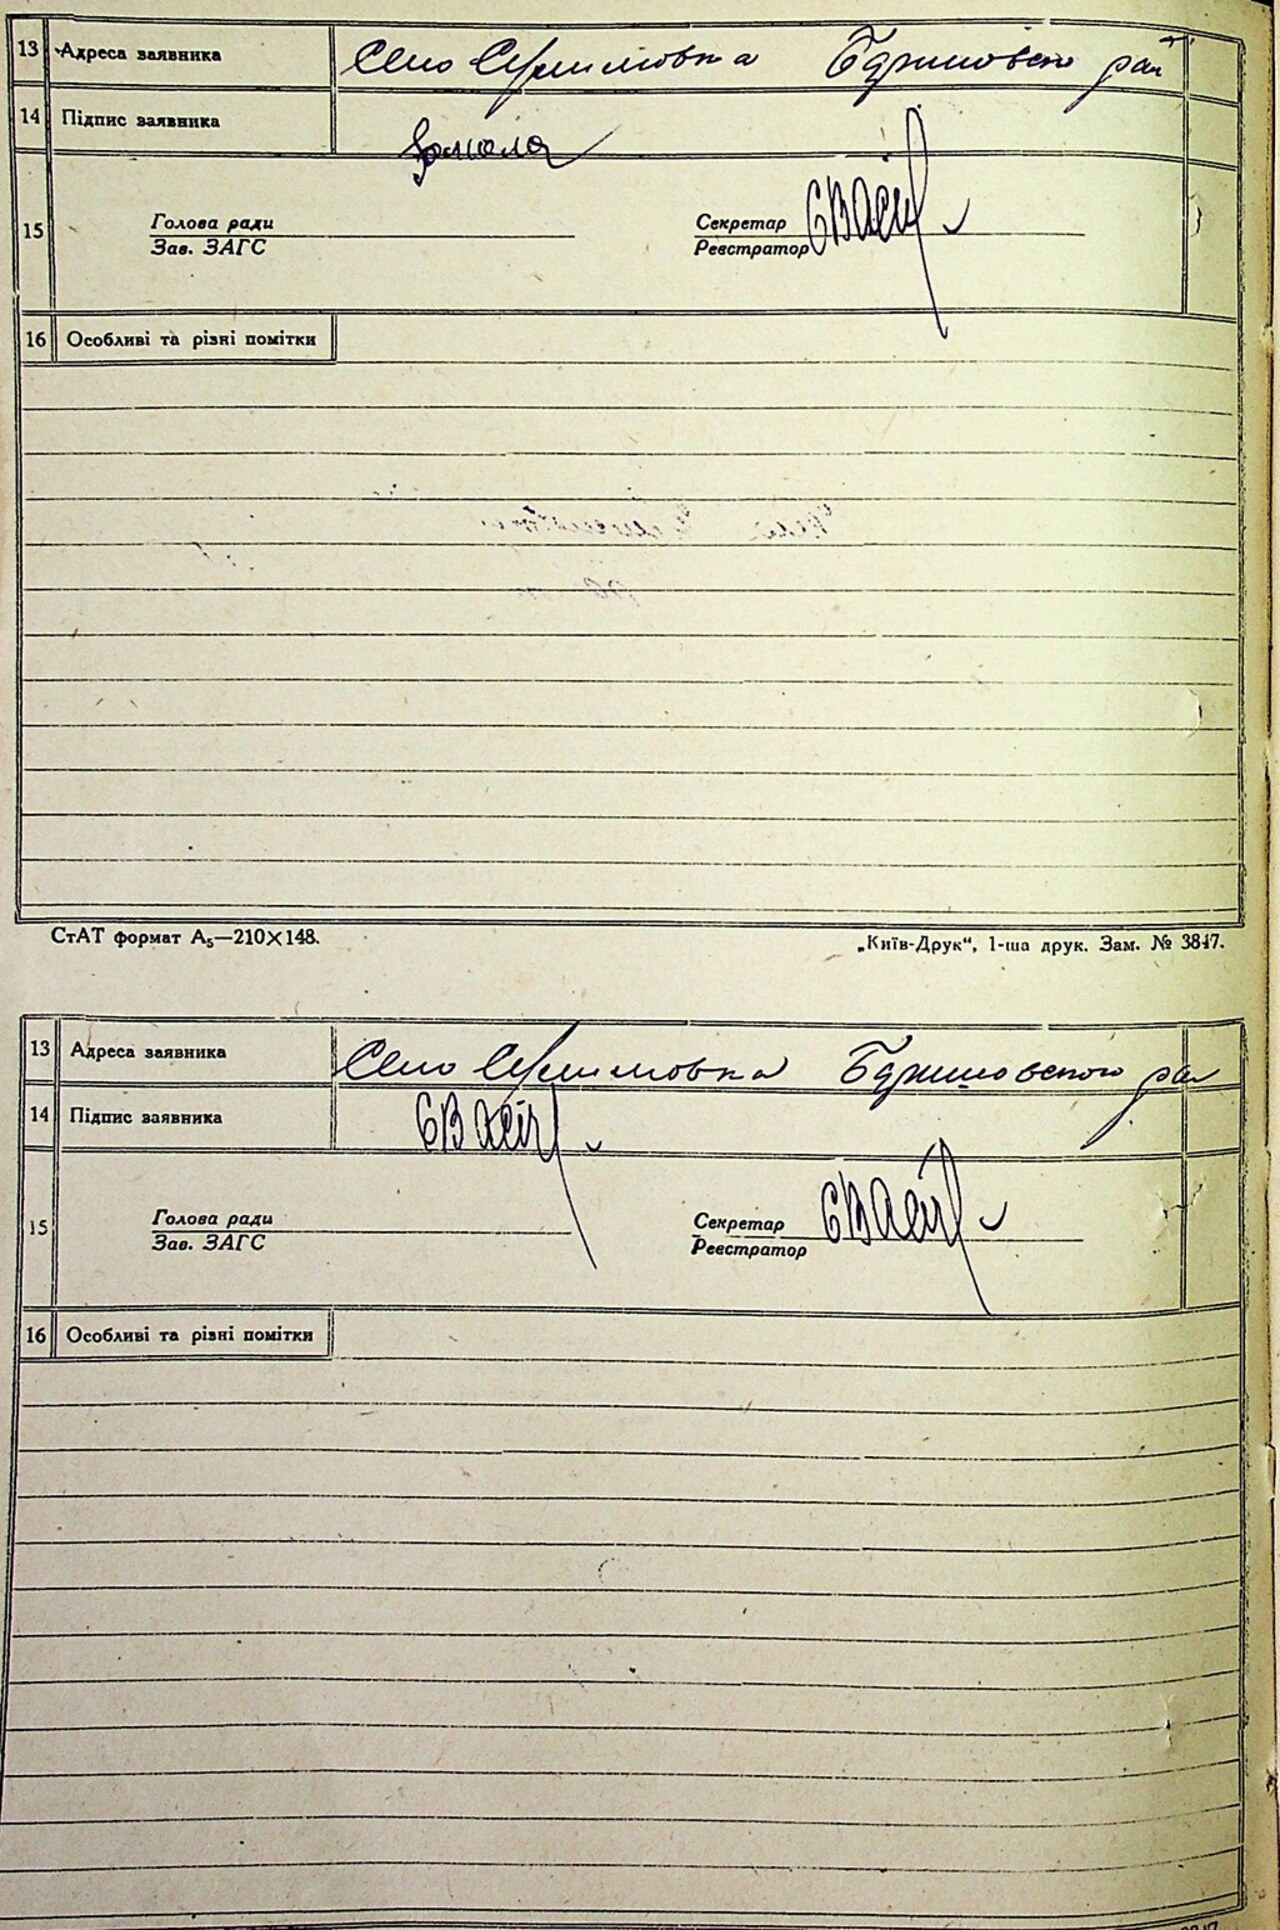 13 Адреса заявника Село Сулимовка Баришовского рай
14 Підпис заявника
15 Голова ради Секретар
Зав. ЗАГС Реєстратор
16 Особливі та різні помітки
СтАТ формат А₅—210×148. „Київ-Друк“, 1-ша друк. Зам. № 3847.
13 Адреса заявника Село Сулимовка Баришовского рай
14 Підпис заявника
15 Голова ради Секретар
Зав. ЗАГС Реєстратор
16 Особливі та різні помітки